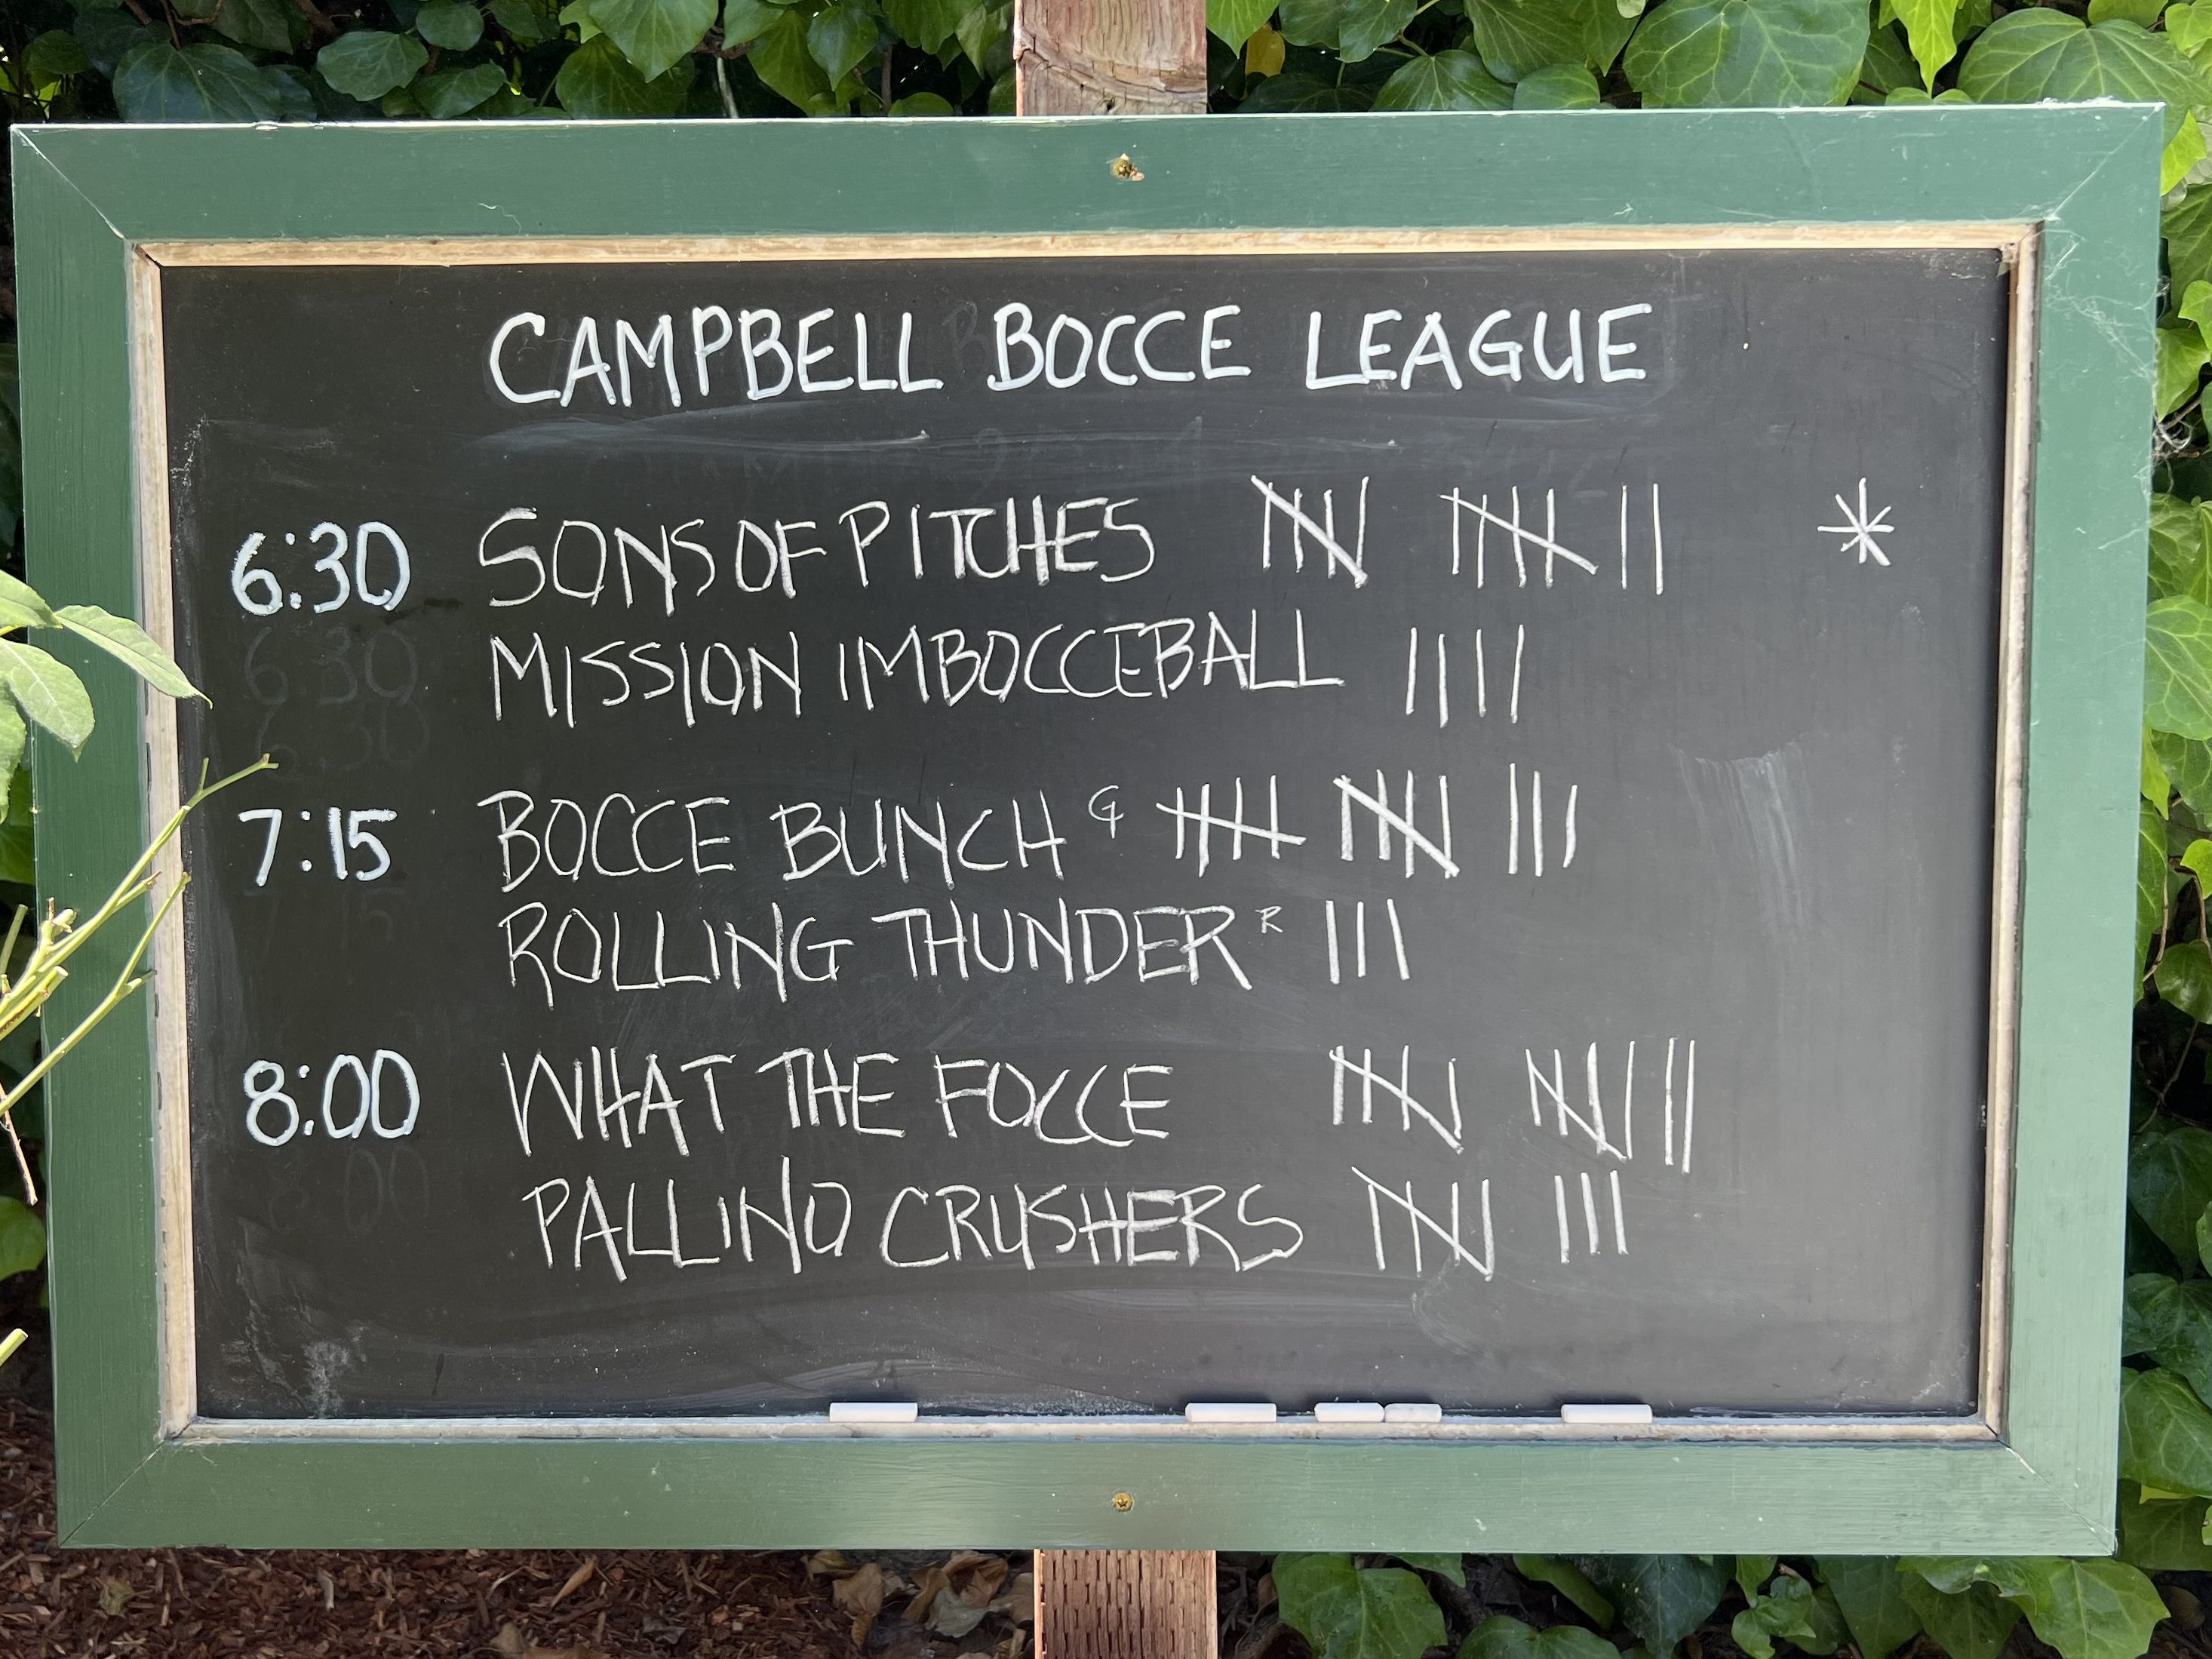 CAMPBELL BOCCE LEAGUE
6:30 SONS OF PITCHES 𝍸 𝍸 || *
MISSION IMBOCCEBALL ||||
7:15 BOCCE BUNCH G 𝍸 𝍸 ||||
ROLLING THUNDER R |||
8:00 WHAT THE FOCCE 𝍸 𝍸 ||
PALLINO CRUSHERS 𝍸 |||